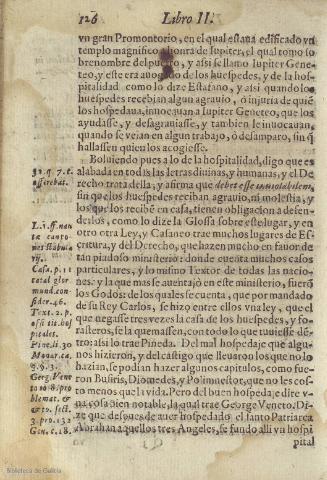 126 Libro II.
vn gran Promontorio, en el qual estaua edificado vn
templo magnifico a honra de Iupiter, el qual tomo so
brenombre del puesto, y asi se llamo Iupiter Gene-
teo, y este era auogado de los huespedes, y de la hos-
pitalidad como lo dize Estafano, y asi quando los
huespedes recebian algun agrauio, ò injuria de quiẽ
los hospedaua, inuocauan a Iupiter Geneteo, que los
ayudasse, y desagrauiasse, y tambien le inuocauan,
quando se veian en algun trabajo, ò desamparo, sin q̃
hallassen quien los acogiesse.
Boluiendo pues a lo de la hospitalidad, digo que es
alabada en todas las letras diuinas, y humanas, y el De
recho trata della, y afirma que debet esse
sin que los huespedes reciban agrauio, ni molestia, y
los que los recibẽ en casa, tienen obligacion a defen-
derlos, como lo dize la Glossa sobre este lugar, y en
otro otra Ley, y Casaneo trae muchos lugares de Es
critura, y del Derecho, que hazen mucho en fauor de
tan piadoso ministerio: donde cuenta muchos casos
particulares, y lo mismo Textor de todas las nacio-
nes: y la que mas se auentajò en este ministerio, fuerõ
los Godos: de los quales se cuenta, que por mandado
de su Rey Carlos, se hizo entre ellos vna ley, que el
que negasse tres vezes la casa de los huespedes, y fo-
rasteros, se la quemassen, con todo lo que tuuiesse dẽ-
tro: asi lo trae Pineda. Del mal hospedaje que algu-
nos hizieron, y del castigo que lleuaron los que no lo
hazian, se podian hazer algunos capitulos, como fue-
ron Busiris, Diomedes, y Polimnestor, que no les cos-
to menos que la vida. Pero del buen hospedaje dire v-
na cosa bien notable, la qual trae George Veneto. Di-
ze que despues de auer hospedado el santo Patriarca
Abrahan aquellos tres Angeles, se fundo alli vn hospi
pital
32. q. 7. c.
L. 1. ff. nau
tæ caupo-
nes stabula
rij.
Casa. p. 11
catal. glor
mund. con
sider. 46.
Text. 2. p.
offi tit. hos
pitales.
Pine. li. 30
Monar. ca.
4. §. 3.
Georg. Vene
to to 8. pro
blemat. &
to. sect.
3. pro. 132
Gen. c. 18.
Biblioteca de Galicia